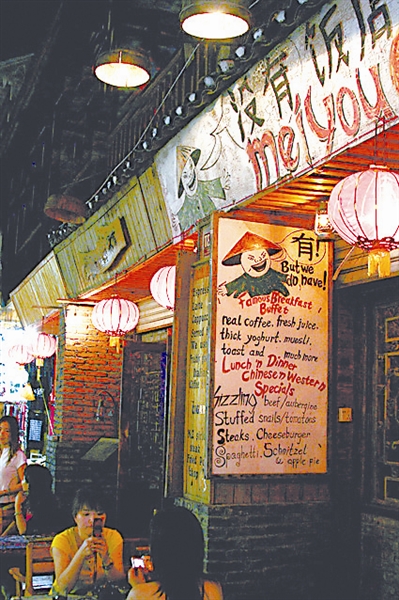 没有饭店
meiyou
有!
But we
do have!
Famous Breakfast
Buffet
real coffee. fresh juice.
thick yoghurt. muesli.
toast and much more
Lunch 'n Dinner
Chinese 'n Western
Specials
Sizzling beef/aubergine
Stuffed snails/tomatoes
Steaks. Cheeseburger
Spaghetti. Schnitzel
& apple pie